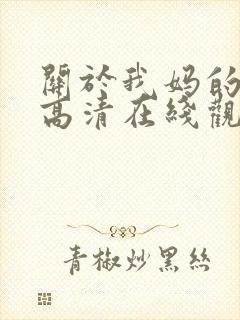 關於我妈的
高清在綫觀
青椒炒黑丝